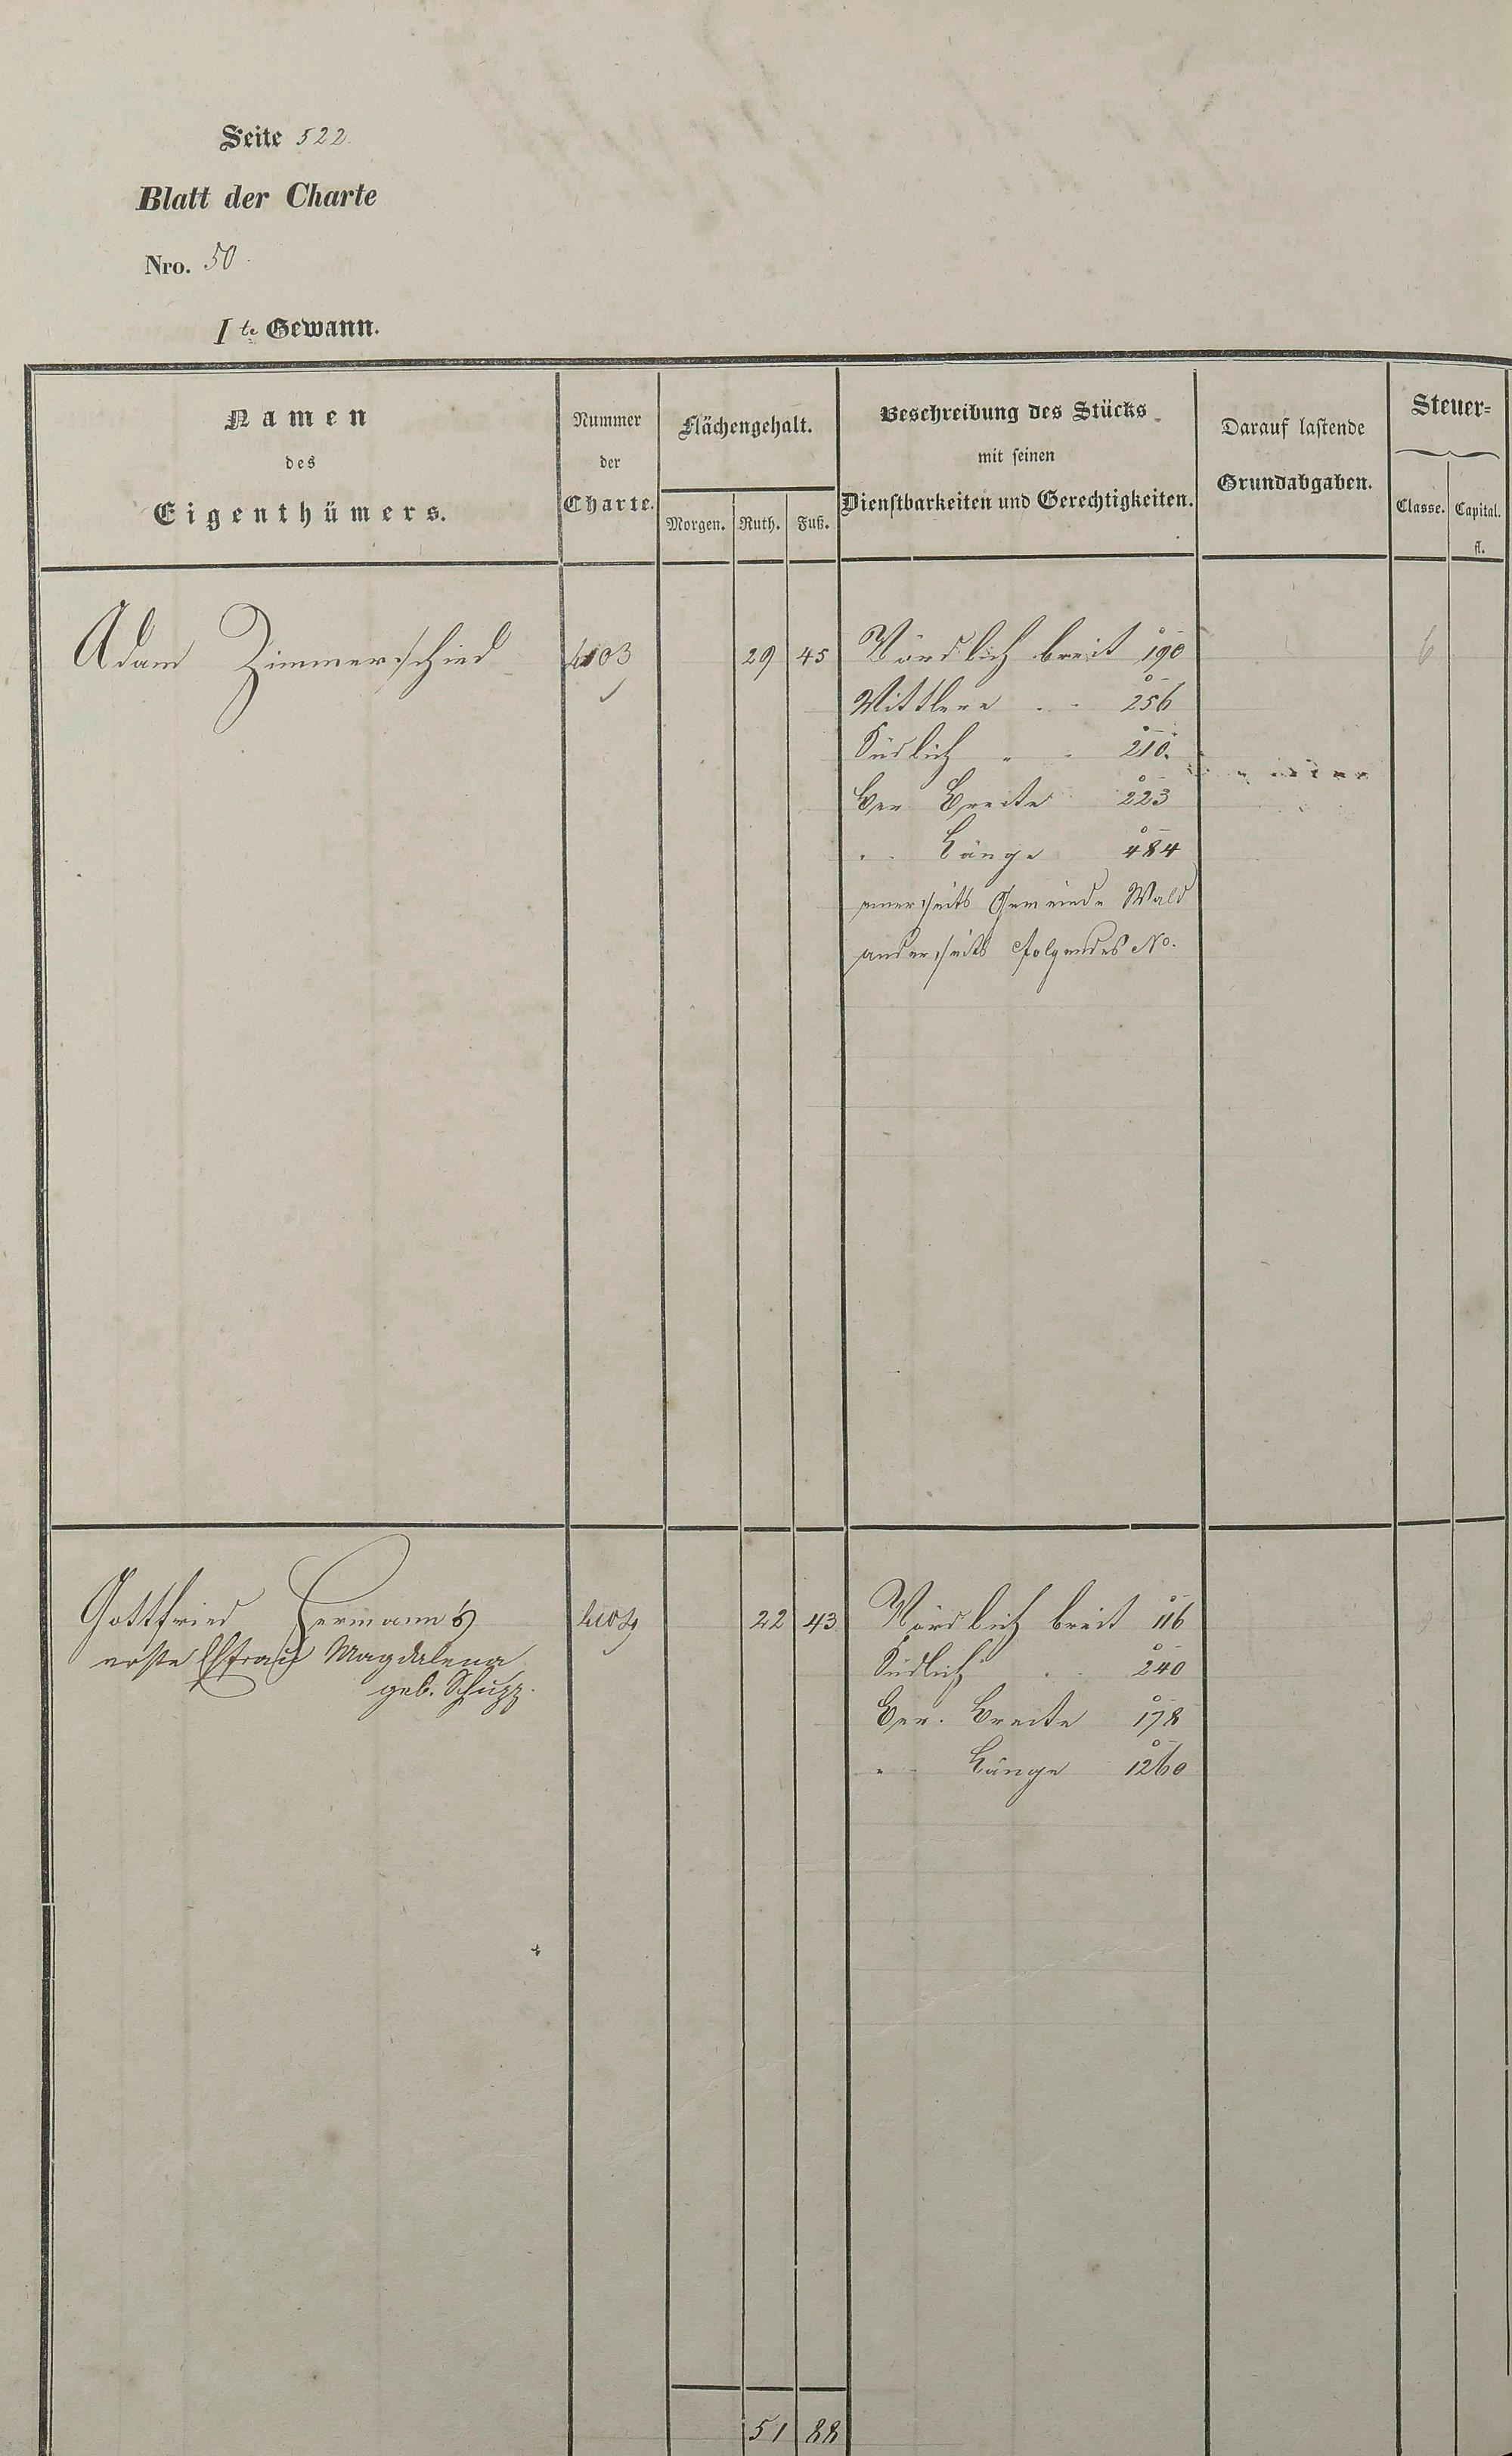 Seite 522.
Blatt der Charte
Nro. 50.
Ite Gewann.
Namen
des
Eigenthümers.
Nummer
der
Charte.
Flächengehalt.
Morgen. Ruth. Fuß.
Beschreibung des Stücks
mit seinen
Dienstbarkeiten und Gerechtigkeiten.
Darauf lastende
Grundabgaben.
Steuer=
Classe. Capital.
fl.
Adam Zimmerschied 4103 29 45 Nördlich breit 190 6
Mittlere " " 256
Südlich " " 210.
Ber. Breite 223
" " Länge 484
einerseits Gemeinde Wald
anderseits folgendes No.
Gottfried Hermann's 4104 22 43 Nördlich breit 116
erste Ehfrau Magdalena
geb. Schupp.
Südlich " " 240
Ber. Breite 178
" " Länge 1260
51 88